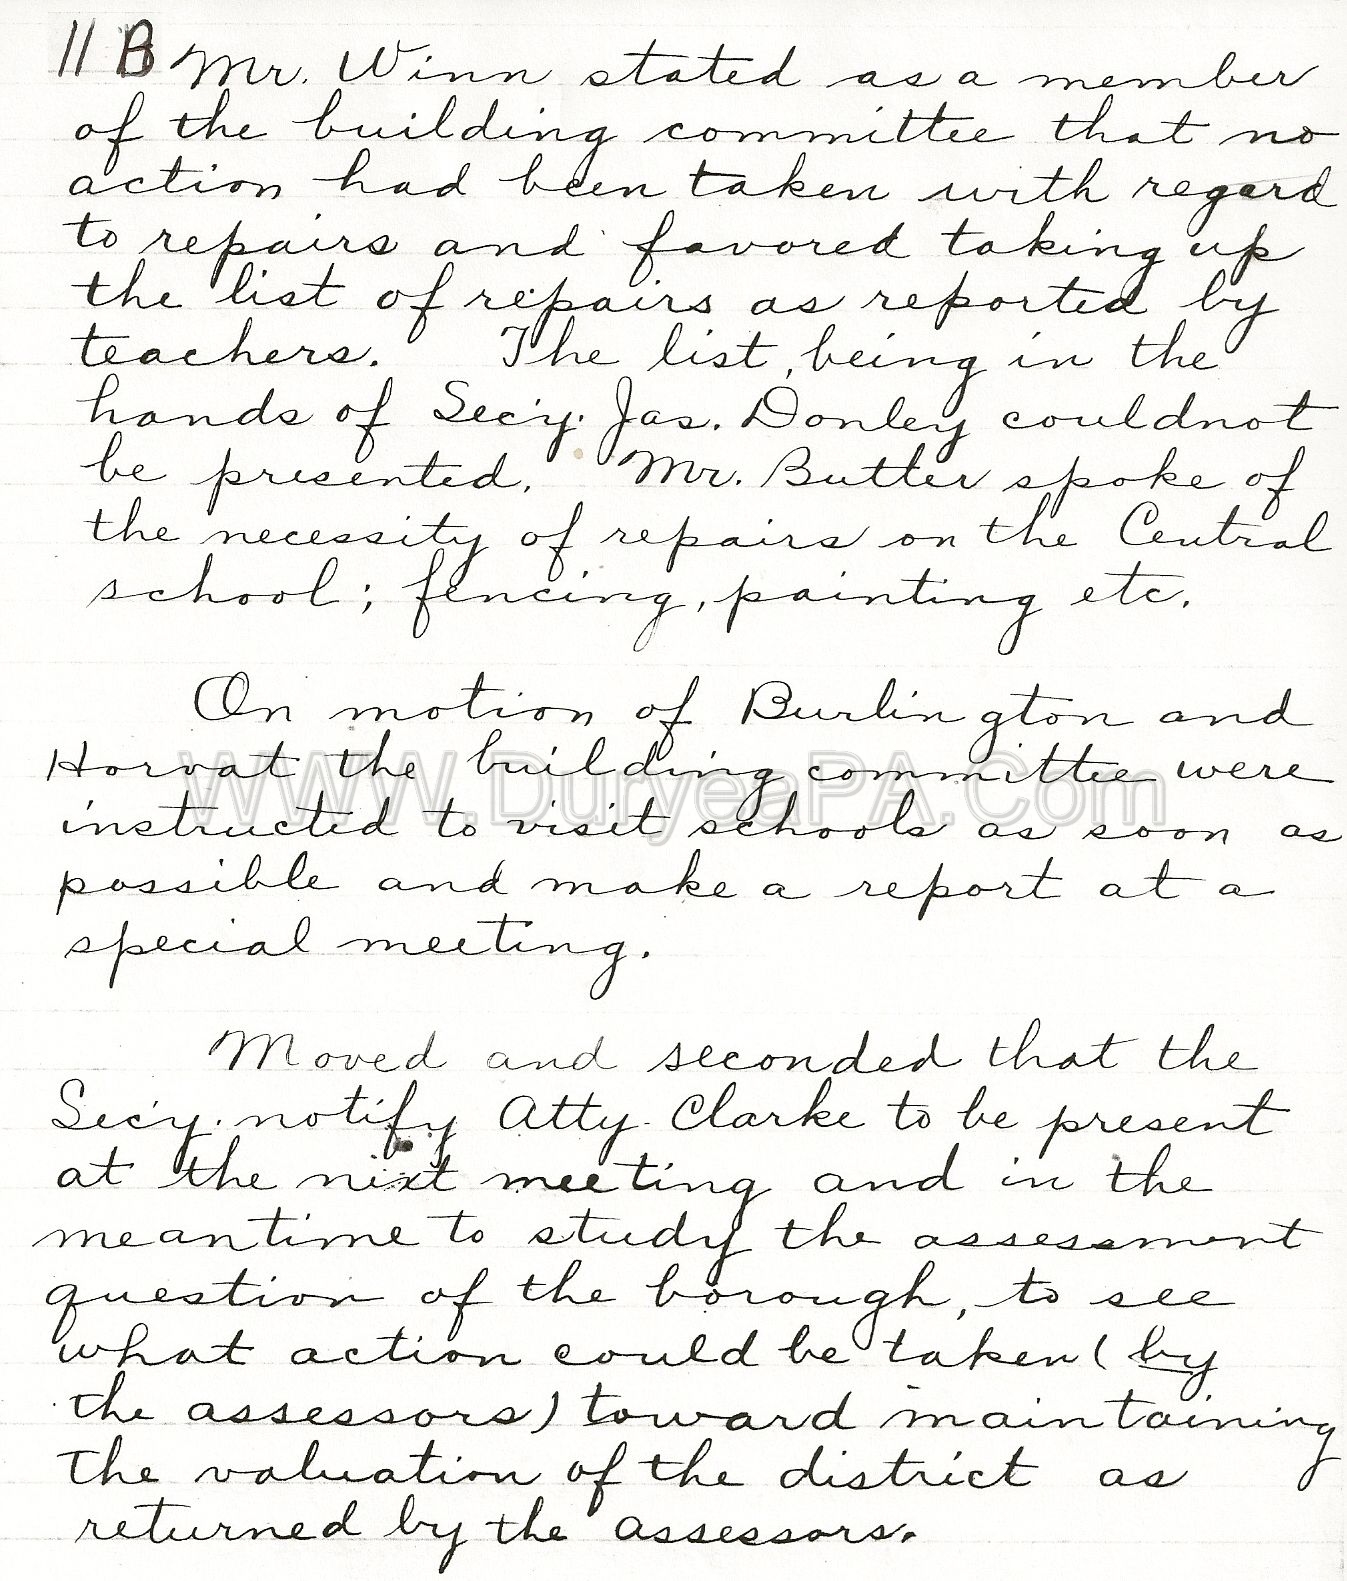 11 B Mr. Winn stated as a member
of the building committee that no
action had been taken with regard
to repairs and favored taking up
the list of repairs as reported by
teachers. The list, being in the
hands of Sec'y. Jas. Donley could not
be presented. Mr. Butler spoke of
the necessity of repairs on the Central
school; fencing, painting etc.
On motion of Burlington and
Horvat the building committee were
WWW.DuryeaPA.Com
instructed to visit schools as soon as
possible and make a report at a
special meeting.
Moved and seconded that the
Sec'y. notify Atty. Clarke to be present
at the next meeting and in the
meantime to study the assessment
question of the borough, to see
what action could be taken (by
the assessors) toward maintaining
the valuation of the district as
returned by the assessors.